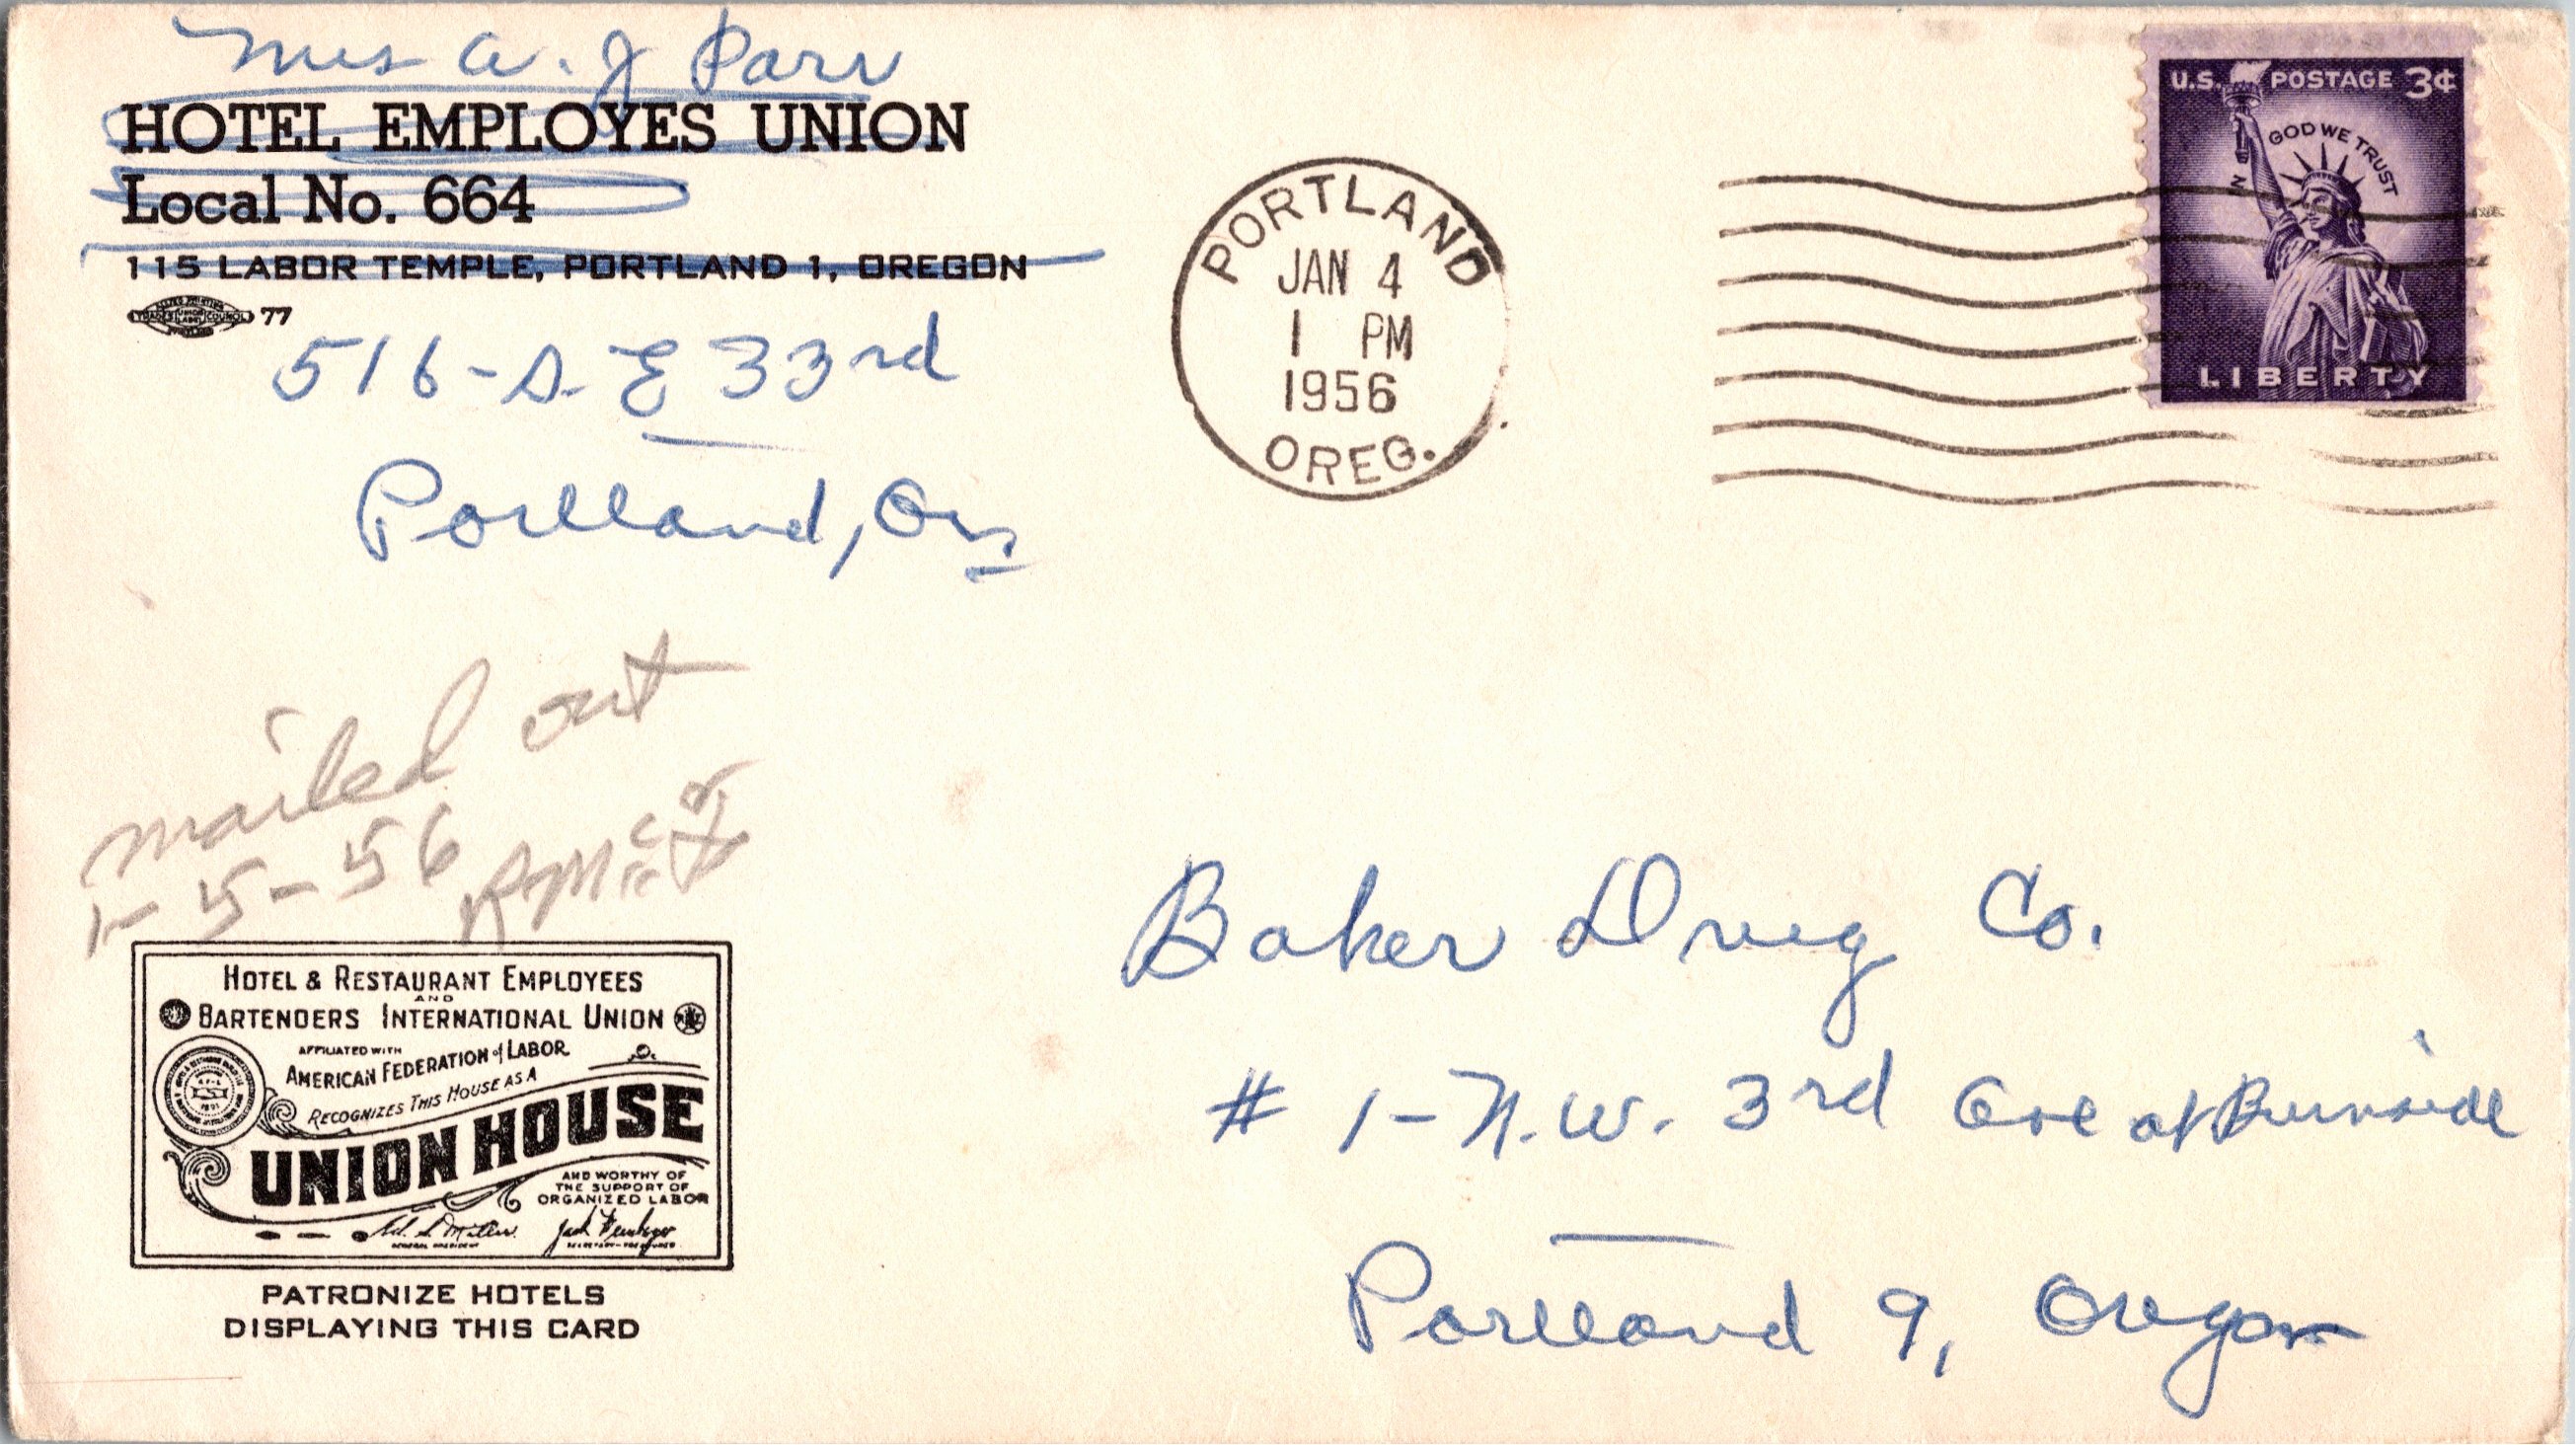 Mrs A. J Parr
HOTEL EMPLOYES UNION
Local No. 664
115 LABOR TEMPLE, PORTLAND 1, OREGON
TRADES UNION LABEL COUNCIL 77
516-S. E 33rd
Portland, Ore
PORTLAND
JAN 4
1 PM
1956
OREG.
U.S. POSTAGE 3¢
IN GOD WE TRUST
LIBERTY
mailed out
1-5-56
Baker Drug Co.
# 1-N.W. 3rd Ave at Burnside
Portland 9, Oregon
HOTEL & RESTAURANT EMPLOYEES
AND
BARTENDERS INTERNATIONAL UNION
AFFILIATED WITH
AMERICAN FEDERATION of LABOR
RECOGNIZES THIS HOUSE AS A
UNION HOUSE
AND WORTHY OF
THE SUPPORT OF
ORGANIZED LABOR
1891
GENERAL PRESIDENT
SECRETARY-TREASURER
PATRONIZE HOTELS
DISPLAYING THIS CARD